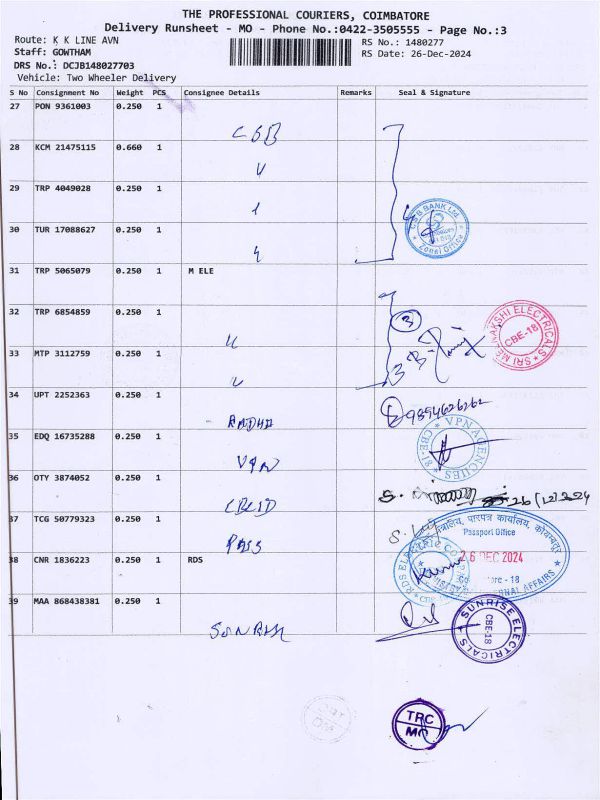 THE PROFESSIONAL COURIERS, COIMBATORE
Delivery Runsheet - MO - Phone No.:0422-3505555 - Page No.:3
Route: K K LINE AVN
RS No.: 1480277
Staff: GOWTHAM
RS Date: 26-Dec-2024
DRS No.: DCJB148027703
Vehicle: Two Wheeler Delivery
S No Consignment No Weight PCS Consignee Details Remarks Seal & Signature
27 PON 9361003 0.250 1
CSB
28 KCM 21475115 0.660 1
29 TRP 4049028 0.250 1
CSB BANK Ltd.
Zonal Office
30 TUR 17088627 0.250 1
31 TRP 5065079 0.250 1 M ELE
32 TRP 6854859 0.250 1
3
SRI MEENAKSHI ELECTRICALS
CBE-18
33 MTP 3112759 0.250 1
34 UPT 2252363 0.250 1
9894626262
RADHA
35 EDQ 16735288 0.250 1
VPN AGENCIES
CBE-18
VPN
36 OTY 3874052 0.250 1
26/12/2024
37 TCG 50779323 0.250 1
पारपत्र कार्यालय, कोयम्बटूर
Passport Office
PASS
38 CNR 1836223 0.250 1 RDS
26 DEC 2024
RDS ELECTRIC
- 18
EXTERNAL AFFAIRS
39 MAA 868438381 0.250 1
SUNRISE ELECTRICALS
CBE-18
SUNRISE
TRC
MO